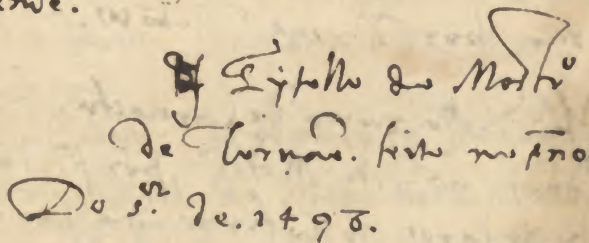 Tytollo do Mostr.º
de loruaõ. feito no ãno
Do s.or de. 1498.